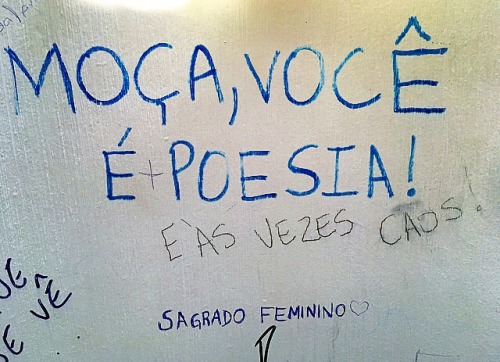 MOÇA, VOCÊ
É + POESIA!
E ÀS VEZES CAOS!
SAGRADO FEMININO♡